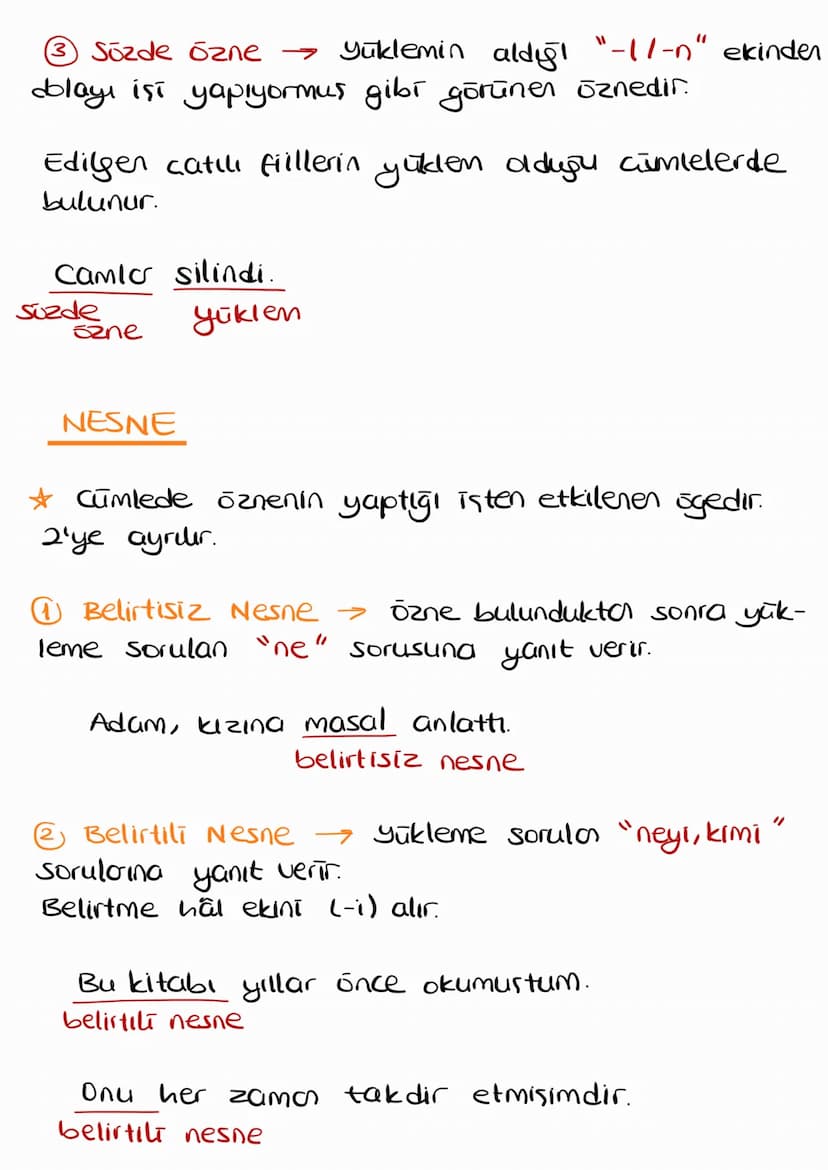 ③ Sözde özne → yüklemin aldığı "-l/-n" ekinden
dolayı işi yapıyormuş gibi görünen öznedir.
Edilgen çatılı fiillerin yüklem olduğu cümlelerde
bulunur.
Camlar silindi.
sözde yüklem
özne
NESNE
☆ Cümlede öznenin yaptığı işten etkilenen ögedir.
2'ye ayrılır.
① Belirtisiz Nesne → Özne bulunduktan sonra yük-
leme sorulan "ne" sorusuna yanıt verir.
Adam, kızına masal anlattı.
belirtisiz nesne
② Belirtili Nesne → yükleme sorulan "neyi, kimi"
sorularına yanıt verir.
Belirtme hâl ekini (-i) alır.
Bu kitabı yıllar önce okumuştum.
belirtili nesne
Onu her zaman takdir etmişimdir.
belirtili nesne